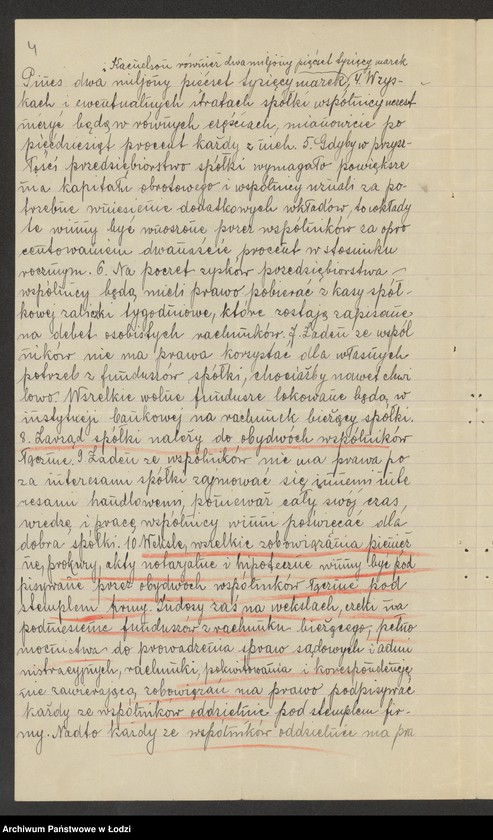 4
Kacnelson również dwa miljony pięćset tysięcy marek
Pines dwa miljony pięćset tysięcy marek, 4. Wzys-
kach i ewentualnych stratach spółki wspólnicy uczest
niczyć będą w równych częściach, mianowicie po
pięćdziesiąt procent każdy z nich. 5. Gdyby w przysz-
łości przedsiębiorstwo spółki wymagało powiększe
nia kapitału obrotowego i wspólnicy uznali za po-
trzebne wniesienie dodatkowych wkładów, to wkłady
te winny być wnoszone przez wspólników za opro
centowaniem dwanaście procent w stosunku
rocznym. 6. Na poczet zysków przedsiębiorstwa
wspólnicy będą mieli prawo pobierać z kasy spół-
kowej zaliczki tygodniowe, które zostają zapisane
na debet osobistych rachunków. 7. Żaden ze wspól
ników nie ma prawa korzystać dla własnych
potrzeb z funduszów spółki, chociażby nawet chwi
lowo. Wszelkie wolne fundusze lokowane będą w
instytucji bankowej na rachunek bieżący spółki.
8. Zarząd spółki należy do obydwóch wspólników
łącznie. 9. Żaden ze wspólników nie ma prawa po
za interesami spółki zajmować się innemi inte
resami handlowemi, ponieważ cały swój czas,
wiedzę i pracę wspólnicy winni poświęcać dla
dobra spółki. 10. Weksle, wszelkie zobowiązania pienięż
ne, prokury, akty notarjalne i hipoteczne winny być pod
pisywane przez obydwóch wspólników łącznie pod
stemplem firmy. Indosy zaś na wekslach, czeki na
podniesienie funduszów z rachunku bieżącego, pełno
mocnictwa do prowadzenia spraw sądowych i admi
nistracyjnych, rachunki, pokwitowania i korespondencję
nie zawierającą zobowiązań ma prawo podpisywać
każdy ze wspólników oddzielnie pod stemplem fir-
my. Nadto każdy ze wspólników oddzielnie ma pra
Archiwum Państwowe w Łodzi